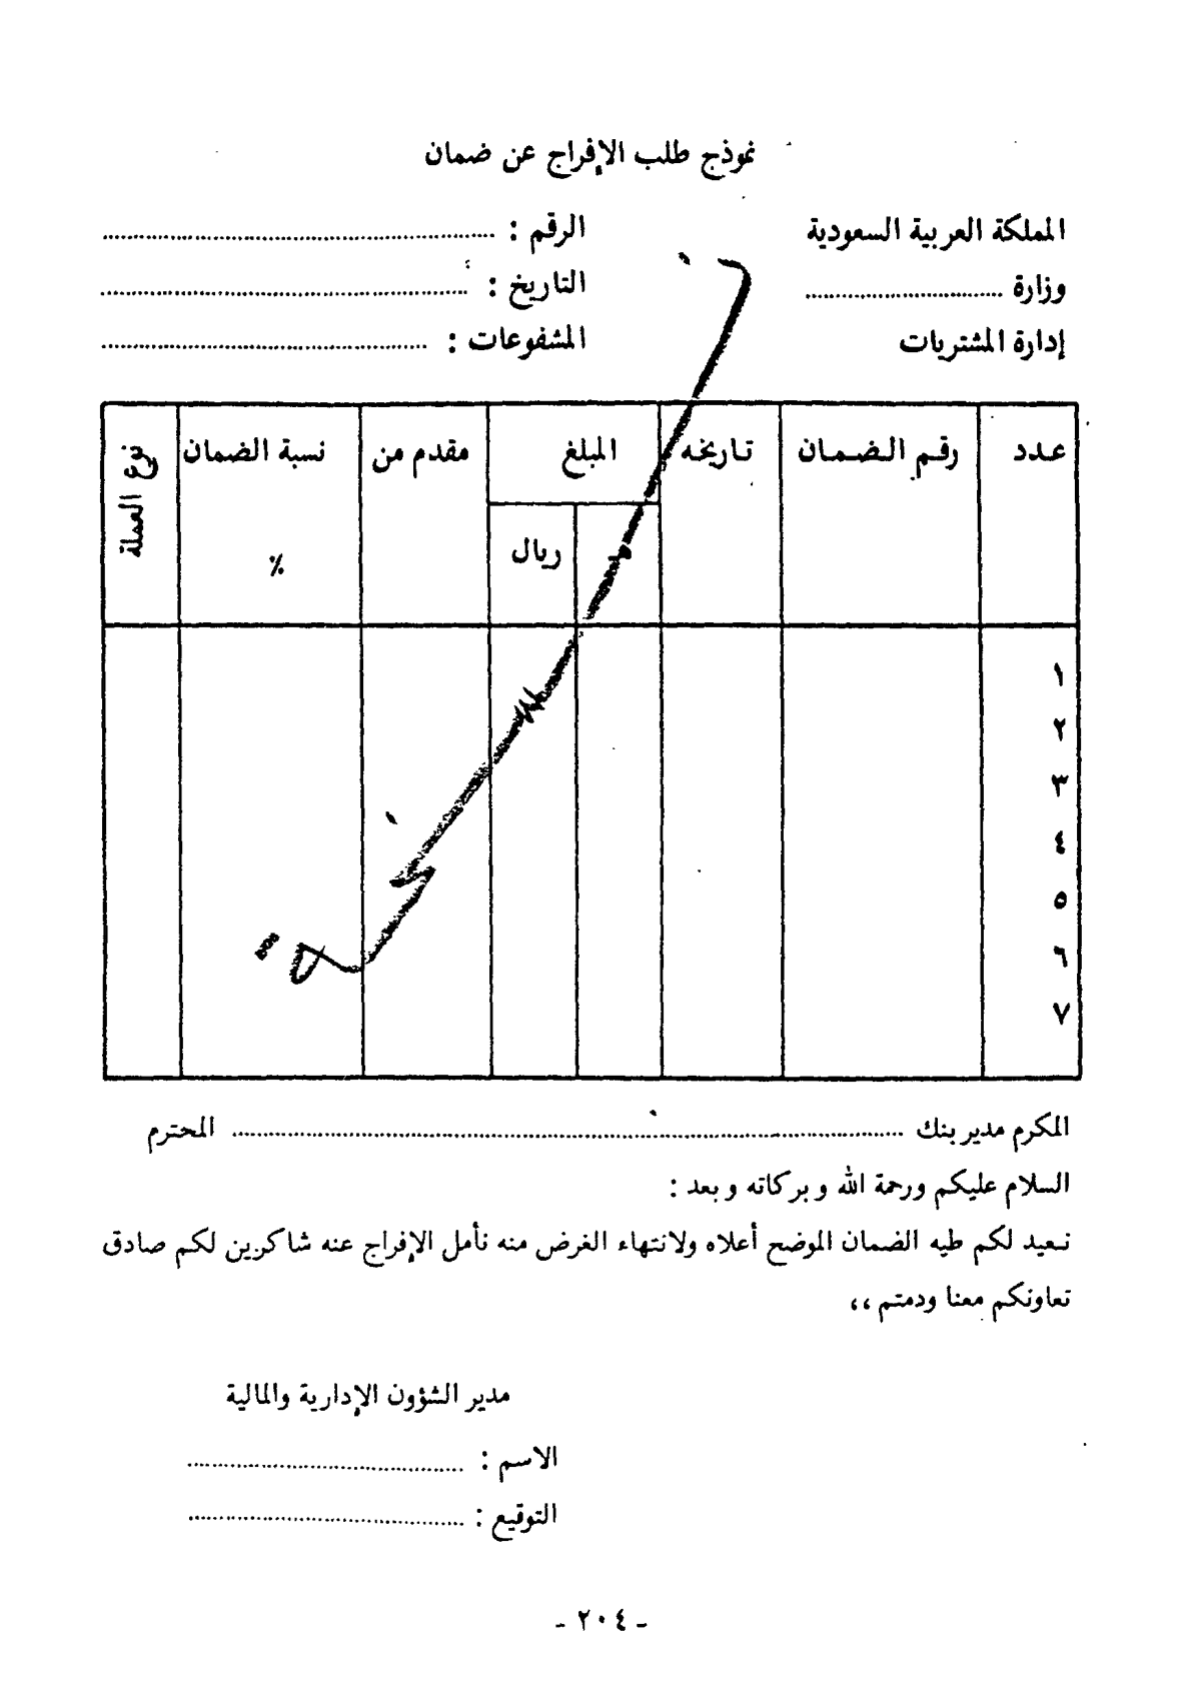 نموذج طلب الإفراج عن ضمان
المملكة العربية السعودية
وزارة ........................
إدارة المشتريات
الرقم : ........................
التاريخ : ........................
المشفوعات : ........................
عدد رقم الضمان تاريخه المبلغ مقدم من نسبة الضمان نوع العملة
ريال ٪
١
٢
٣
٤
٥
٦
٧
المكرم مدير بنك ........................ المحترم
السلام عليكم ورحمة الله وبركاته وبعد :
نعيد لكم طيه الضمان الموضح أعلاه ولانتهاء الغرض منه نأمل الإفراج عنه شاكرين لكم صادق
تعاونكم معنا ودمتم ،،
مدير الشؤون الإدارية والمالية
الاسم : ........................
التوقيع : ........................
- ٢٠٤ -